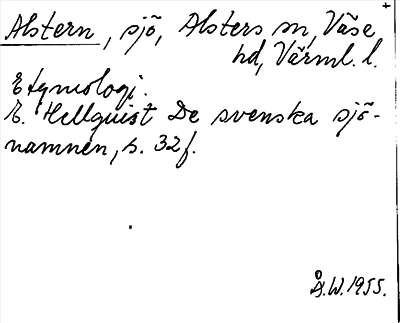 Alstern, sjö, Alsters sn, Väse
hd, Värml. l.
Etymologi.
E. Hellquist De svenska sjö-
namnen, s. 32 f.
Å.W. 1955.